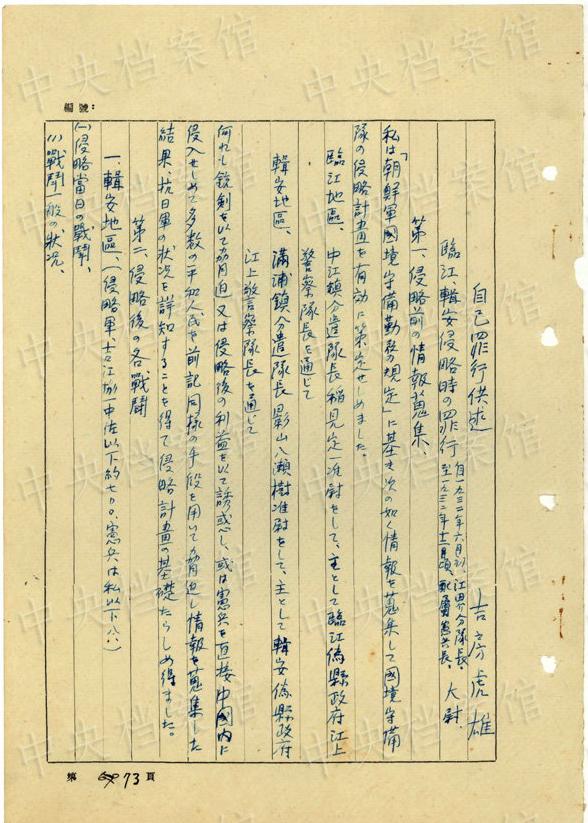 編號：
自己罪行供述
吉房虎雄
臨江、輯安侵略時の罪行 自一九三二年六月 江界分隊長
至一九三二年十一月頃 憲兵長、大尉、
第一、侵略前の情報蒐集、
私は「朝鮮軍國境守備勤務規定」に基き次の如く情報を蒐集して國境守備
隊の侵略計畫を有効に策定せしめました。
臨江地區、中江鎮分遣隊長稲見定一准尉をして、主として臨江偽縣政府江上
警察隊長を通じて
輯安地區、滿浦鎮分遣隊長影山八瀬樹准尉をして、主として輯安偽縣政府
江上警察隊長を通じて
何れも銃剣を以て脅迫又は侵略後の利益を以て誘惑し、或は憲兵を直接中國内に
侵入せしめて多数の平和人民を前記同様の手段を用いて脅迫し情報を蒐集した
結果、抗日軍の状況を詳知することを得て侵略計畫の基礎たらしめ得ました。
第二、侵略後の各戰鬪
一、輯安地區、(侵略軍、 中佐以下約七〇〇、憲兵は私以下八、)
(一)侵略當日の戰鬪、
(1)戰鬪一般の狀況、
第 73 頁
中央档案馆